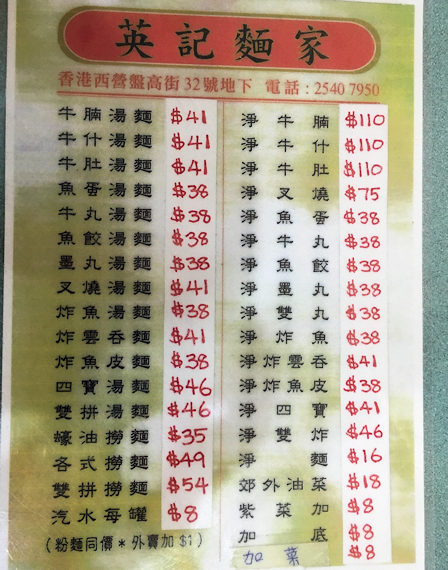 英記麵家
香港西營盤高街32號地下 電話:2540 7950
牛腩湯麵 $41
牛什湯麵 $41
牛肚湯麵 $41
魚蛋湯麵 $38
牛丸湯麵 $38
魚餃湯麵 $38
墨丸湯麵 $38
叉燒湯麵 $41
炸魚湯麵 $38
炸雲吞麵 $41
炸魚皮麵 $38
四寶湯麵 $46
雙拼湯麵 $46
蠔油撈麵 $35
各式撈麵 $49
雙拼撈麵 $54
汽水每罐 $8
(粉麵同價*外賣加$1)
淨牛腩 $110
淨牛什 $110
淨牛肚 $110
淨叉燒 $75
淨魚蛋 $38
淨牛丸 $38
淨魚餃 $38
淨墨丸 $38
淨雙丸 $38
淨炸魚 $38
淨炸雲吞 $41
淨炸魚皮 $38
淨四寶 $41
淨雙炸 $46
淨麵 $16
郊外油菜 $18
紫菜加 $8
加底 $8
加菜 $8